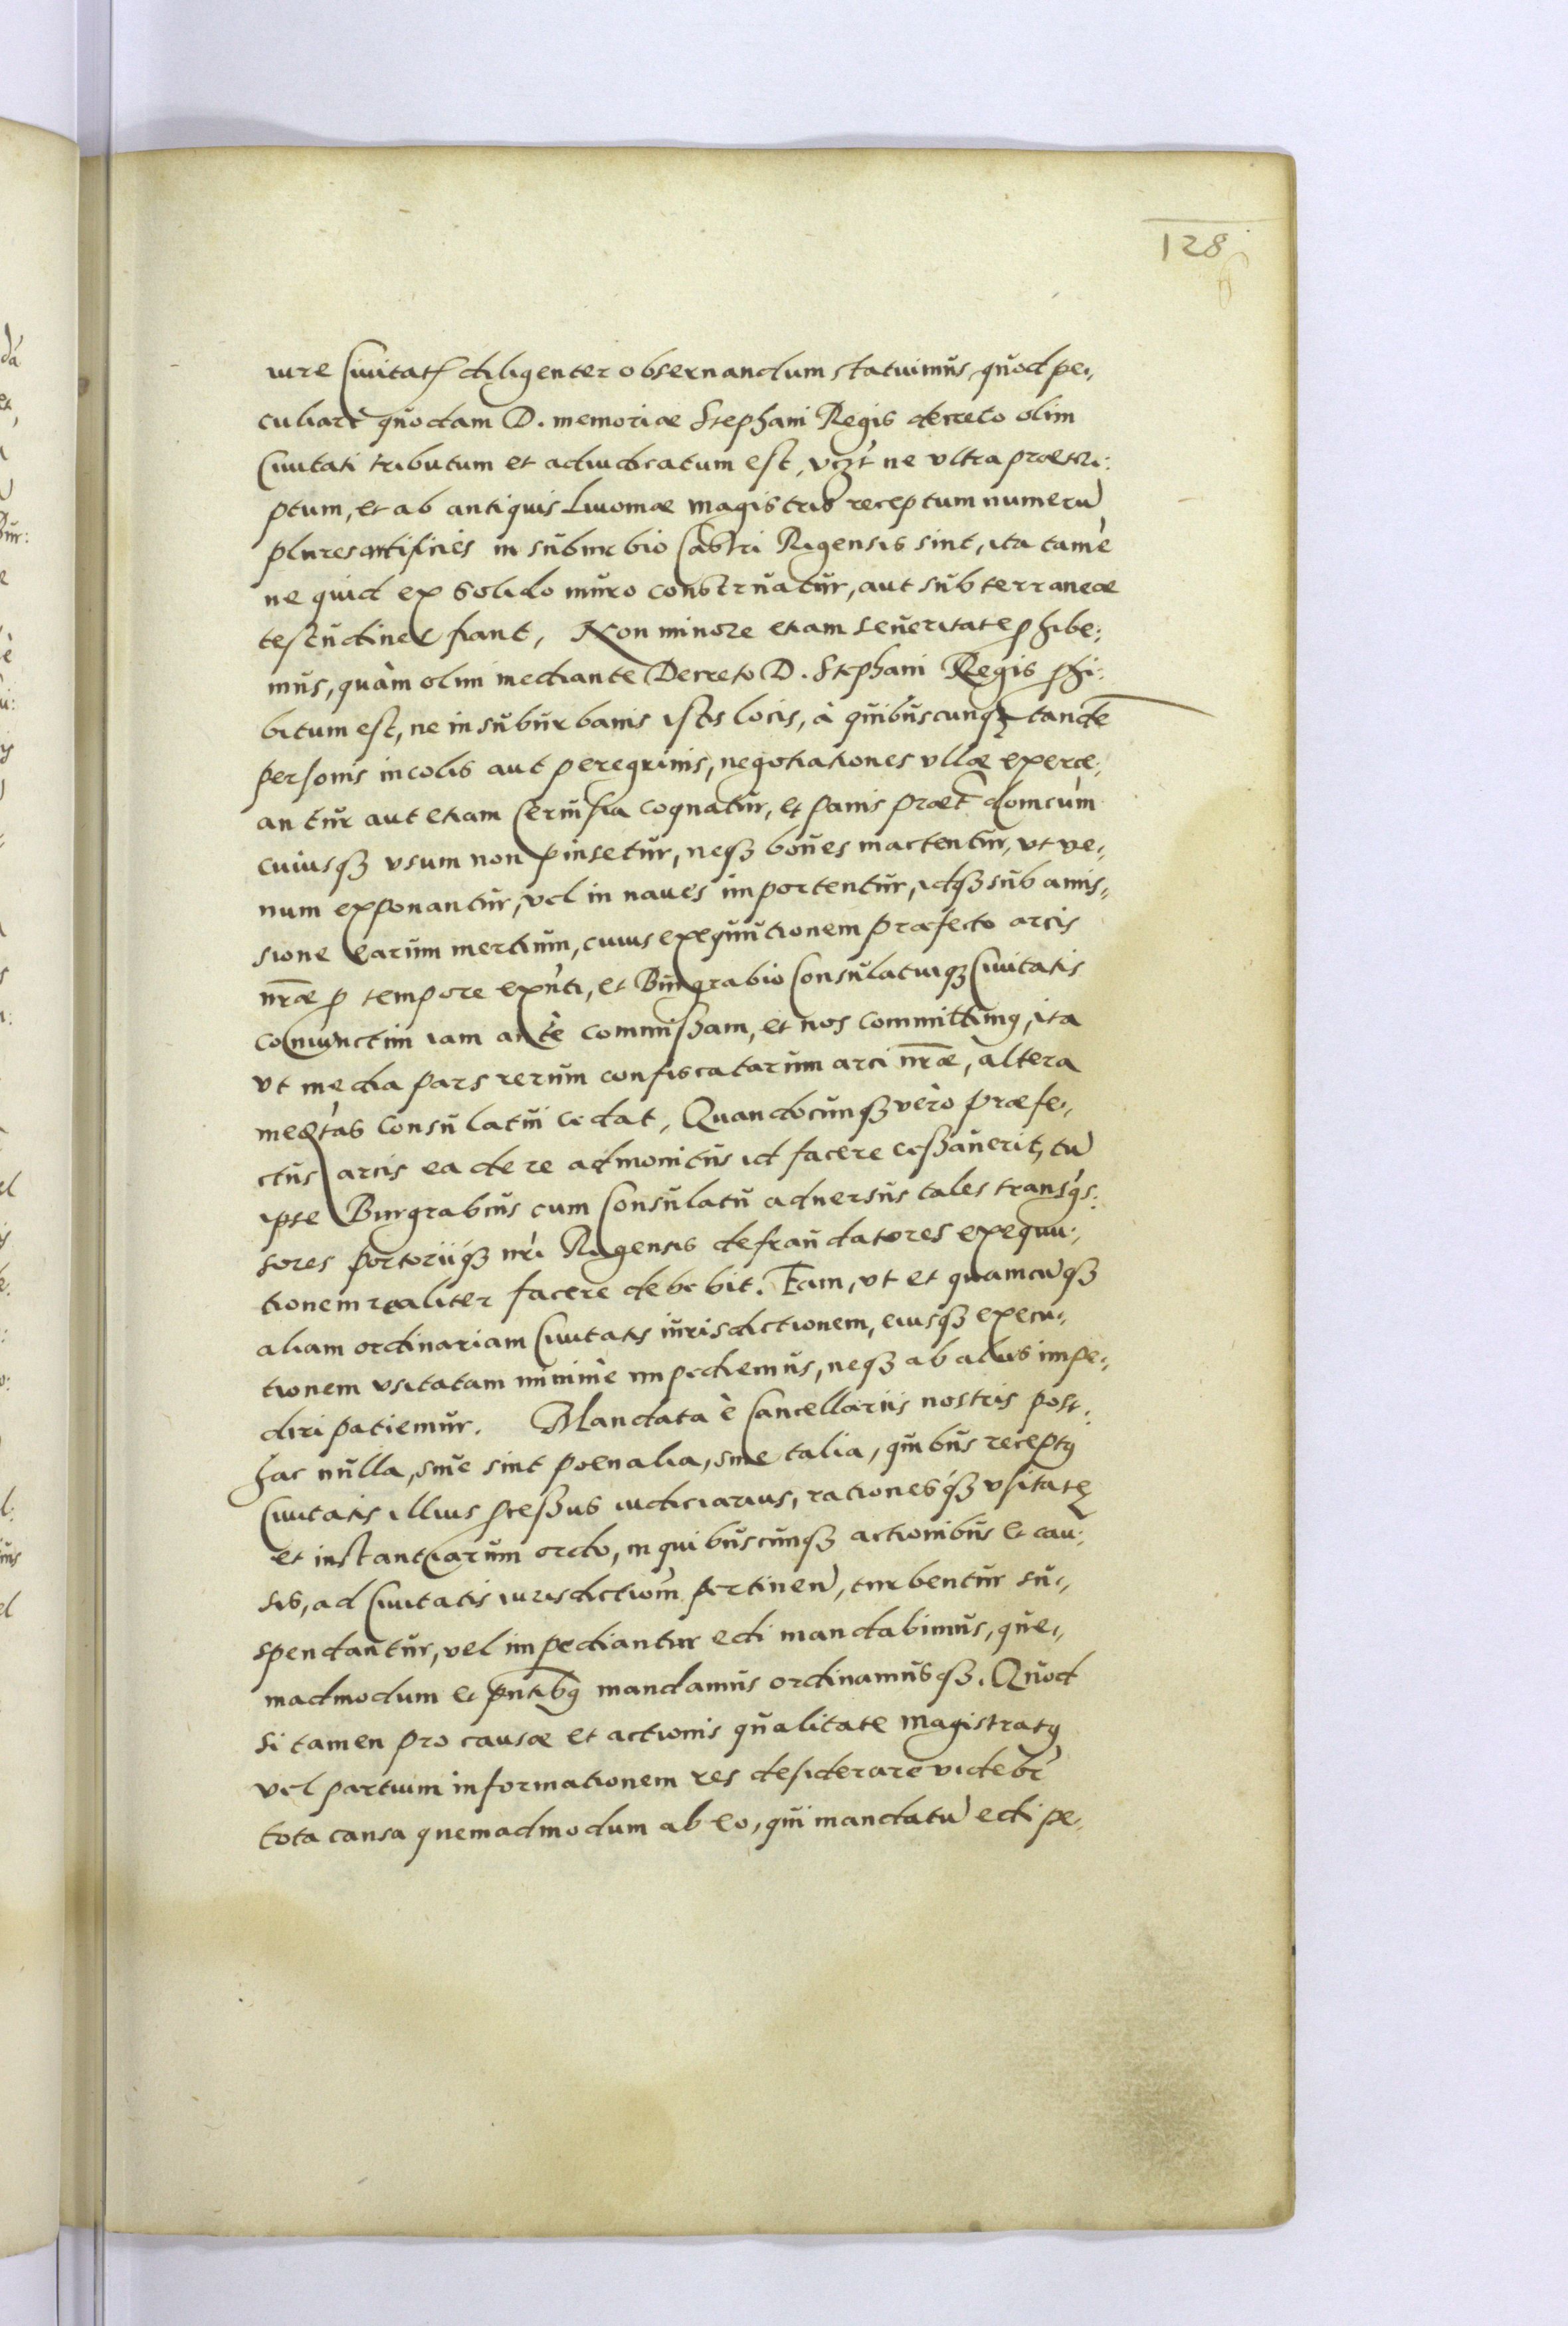 128
6
iure Ciuitatis diligenter obseruandum statuimus, quod pe-
culiari quodam D. memoriae Stephani Regis decreto olim
Ciuitati tributum et adiudicatum est, vizt ne vltra praescri:
ptum, et ab antiquis Liuoniae magistris receptum numerũ
plures artifices in suburbio Castri Rigensis sint, ita tamẽ
ne quid ex solido muro construatur, aut subterraneae
testudines fiant, Non minore etiam seueritate ꝓhibe:
mus, quàm olim mediante Decreto D. Stephani Regis ꝓhi:
bitum est, ne in suburbanis istis locis, à quibuscunqꝫ tandẽ
personis incolis aut peregrinis, negotiationes vllae exerce-
antur aut etiam Ceruisia coquatur, et panis praet domcum
cuiusqꝫ vsum non pinsetur, neqꝫ boues mactentur, vt ve-
num exponantur, vel in naues importentur, idqꝫ sub amis-
sione earum mertium, cuius exequutionem praefecto arcis
nr̃ae ꝓ tempore exñti, et Burgrabio Consulatuiqꝫ Ciuitatis
coniunctim iam antè commissam, et nos committimꝰ, ita
vt media pars rerum confiscatarum arci nr̃ae, altera
medietas Consulatui cedat, Quandocunqꝫ verò praefe-
ctus arcis ea de re admonitus id facere cessauerit, tũ
ipse Burgrabius cum Consulatu aduersus tales transgs:
sores portoriiqꝫ nr̃i Rigensis defraudatores exequu-
tionem realiter facere debebit. Eam, vt et quamcũqꝫ
aliam ordinariam Ciuitatis iurisdictionem, eiusqꝫ execu-
tionem vsitatam minimè impediemus, neqꝫ ab aliis impe-
diri patiemur. Mandata è Cancellariis nostris post-
hac nulla, siue sint poenalia, siue talia, quibus receptꝰ
Ciuitatis illius ꝓcessus iudiciarius, rationesqꝫ vsitatę
et instantiarum ordo, in quibuscunqꝫ actionibus et cau-
sis, ad Ciuitatis iurisdictiom pertinen, turbentur su-
spendantur, vel impediantur edi mandabimus, que-
madmodum et pntibꝰ mandamus ordinamusqꝫ. Quod
si tamen pro causae et actionis qualitate magistratꝰ
vel partium informationem res desiderare videbr
tota causa quemadmodum ab eo, qui mandatũ edi pe-